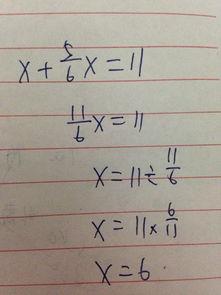 x + 5/6 x = 11
11/6 x = 11
x = 11 ÷ 11/6
x = 11 × 6/11
x = 6